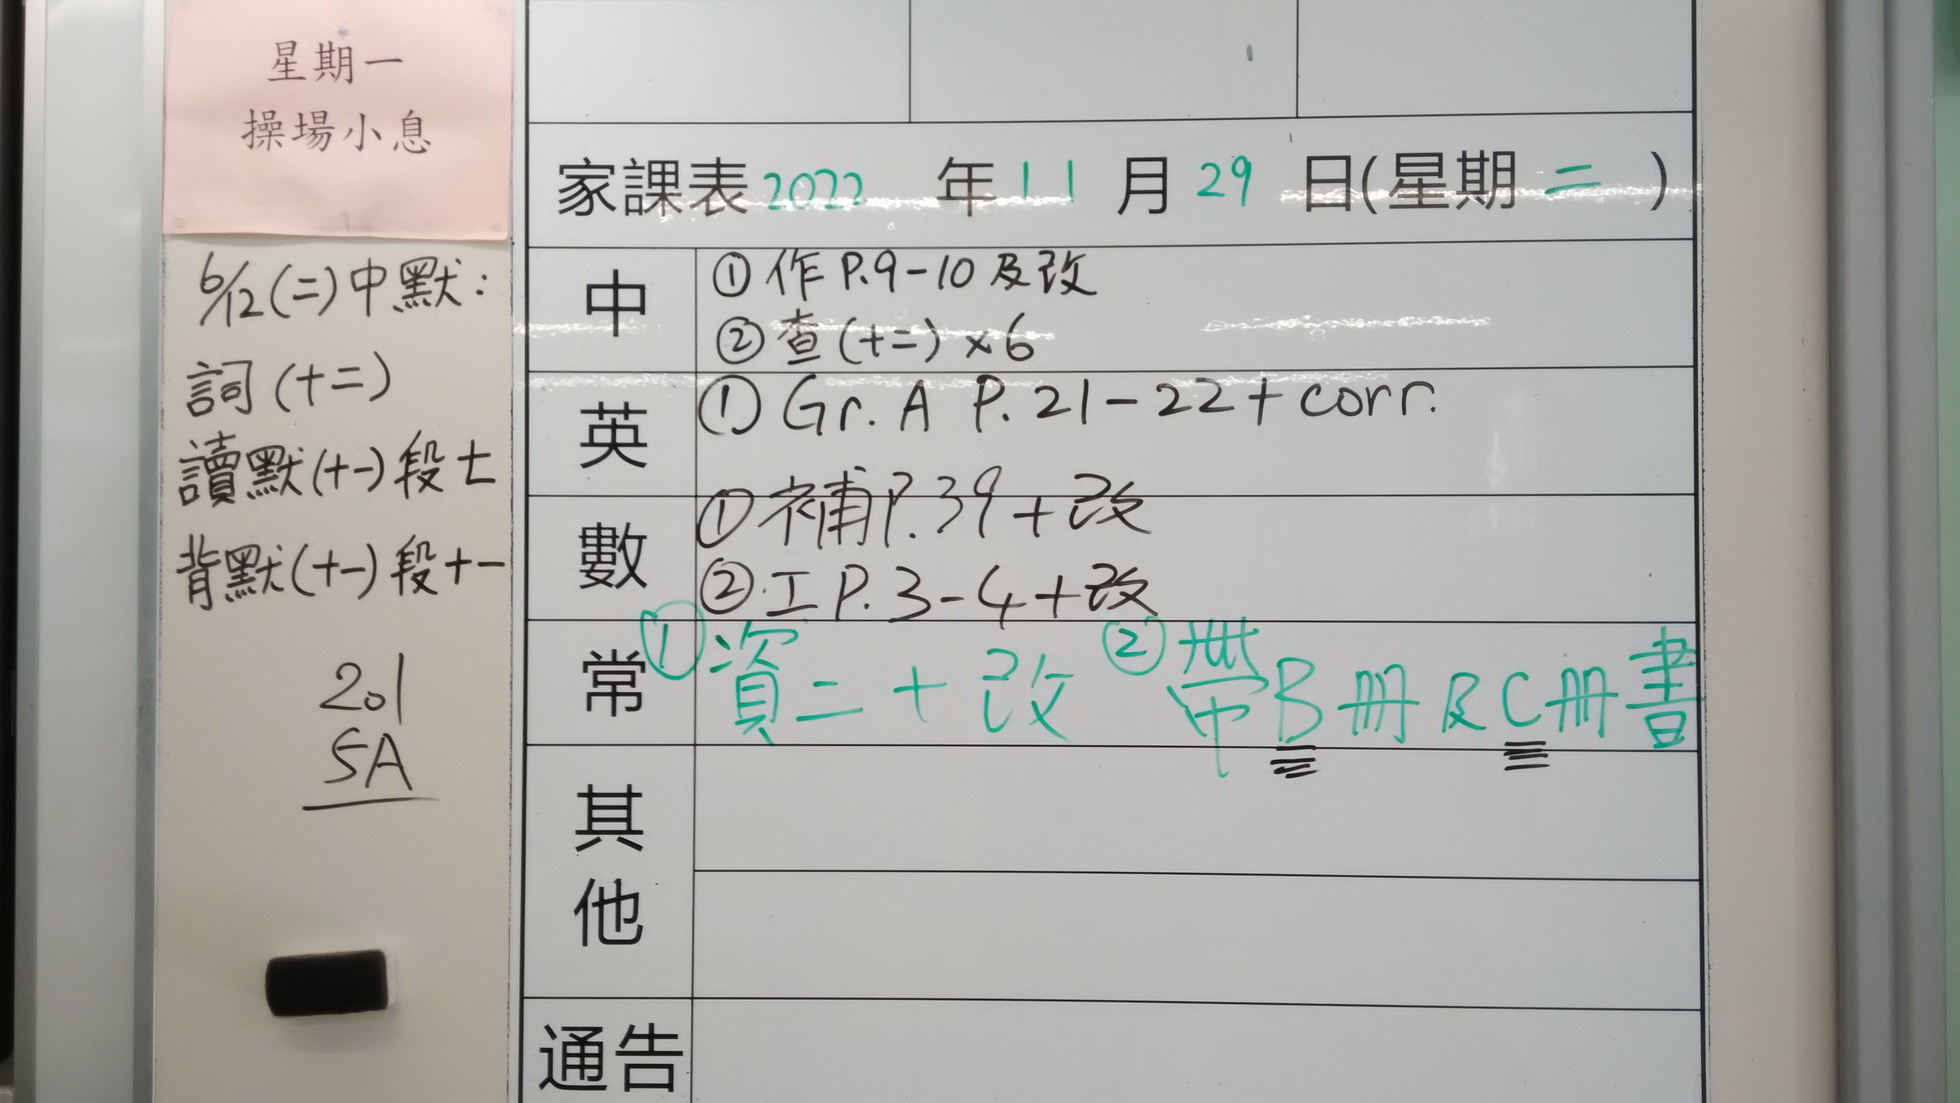 星期一
操場小息
6/12(二)中默:
詞(十二)
讀默(十一)段七
背默(十一)段十一
201
5A
家課表2022年11月29日(星期二)
中
①作P.9-10及改
②查(十二)×6
英
①Gr. A P. 21-22+corr.
數
①補P.39+改
②工P.3-4+改
常
①資二+改 ②帶B冊及C冊書
其他
通告